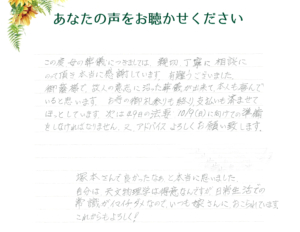 あなたの声をお聴かせください
この度 母の葬儀につきましては、親切 丁寧に 相談に
のって頂き 本当に感謝しています。有難うございました。
御蔭様で、故人の意志に沿った葬儀が出来て、本人も喜んで
いると思います。お寺の御礼参りも終り 支払いも済ませて
ほっとしています。次は49日の法要 10/9(日)に向けての準備
をしなければなりません。又、アドバイス よろしくお願い致します。
塚本さんで良かったなぁと本当に思いました。
自分は 天文物理学は得意なんですが、日常生活での
常識がイマイチダメなので、いつも嫁さんに おこられています
これからもよろしく!